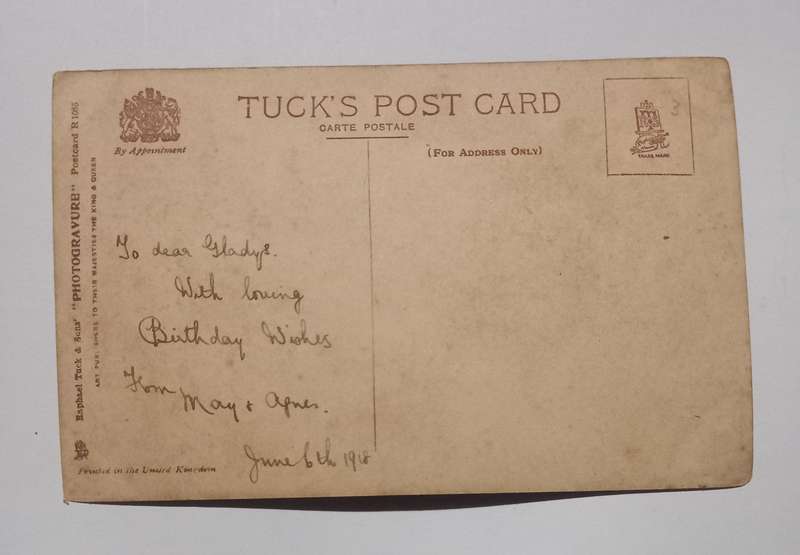 TUCK'S POST CARD
CARTE POSTALE
By Appointment
(For Address Only)
TRADE MARK
3
Raphael Tuck & Sons' "PHOTOGRAVURE" Postcard R 1085
ART PUBLISHERS TO THEIR MAJESTIES THE KING & QUEEN
To dear Gladys.
With loving
Birthday Wishes
From
May & Agnes.
June 6th 1918
Printed in the United Kingdom